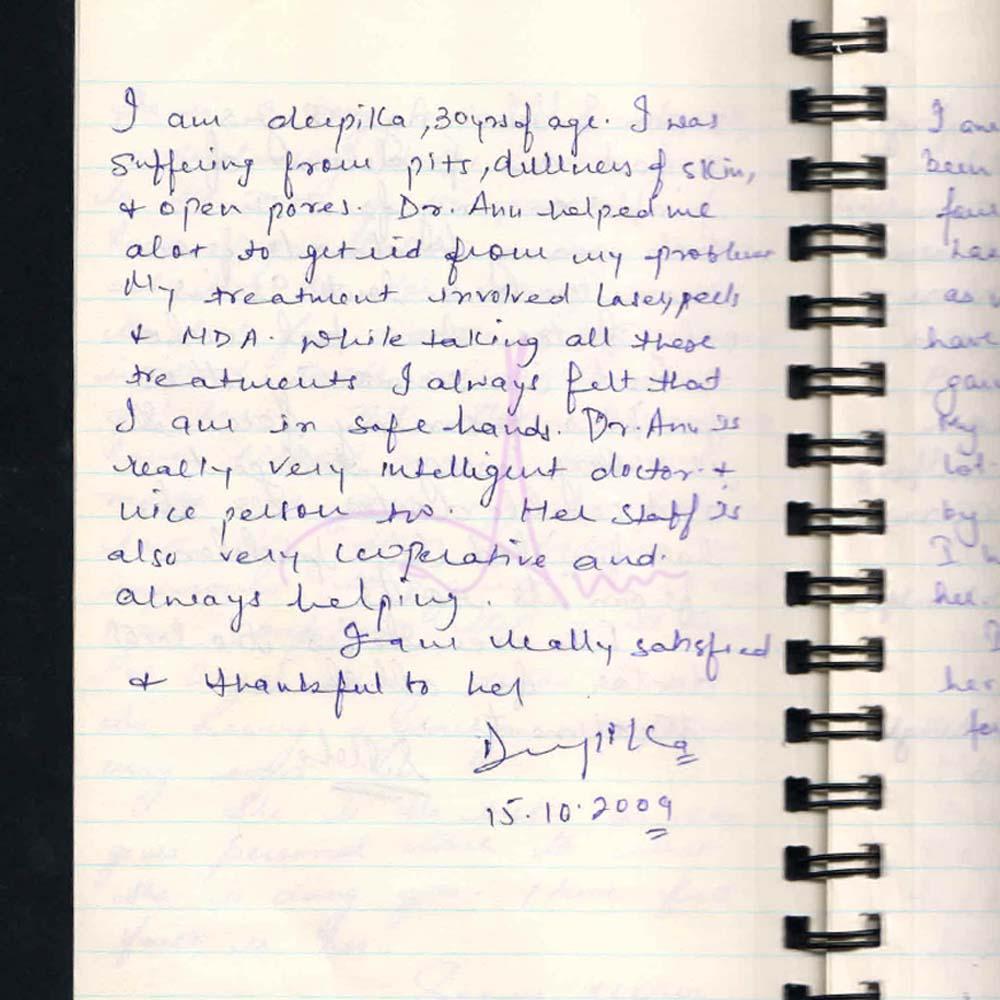 I am deepika, 30yrs of age. I was
suffering from pits, dullness of skin,
& open pores. Dr. Anu helped me
alot to get rid from my problem
My treatment involved laser, peels
& MDA. While taking all these
treatments I always felt that
I am in safe hands. Dr. Anu is
really very intelligent doctor &
nice person too. Her staff is
also very cooperative and
always helping.
I am really satisfied
& thankful to her
Deepika
15.10.2009
I am
been
has
as
have
My
lot
by
I
her.
her